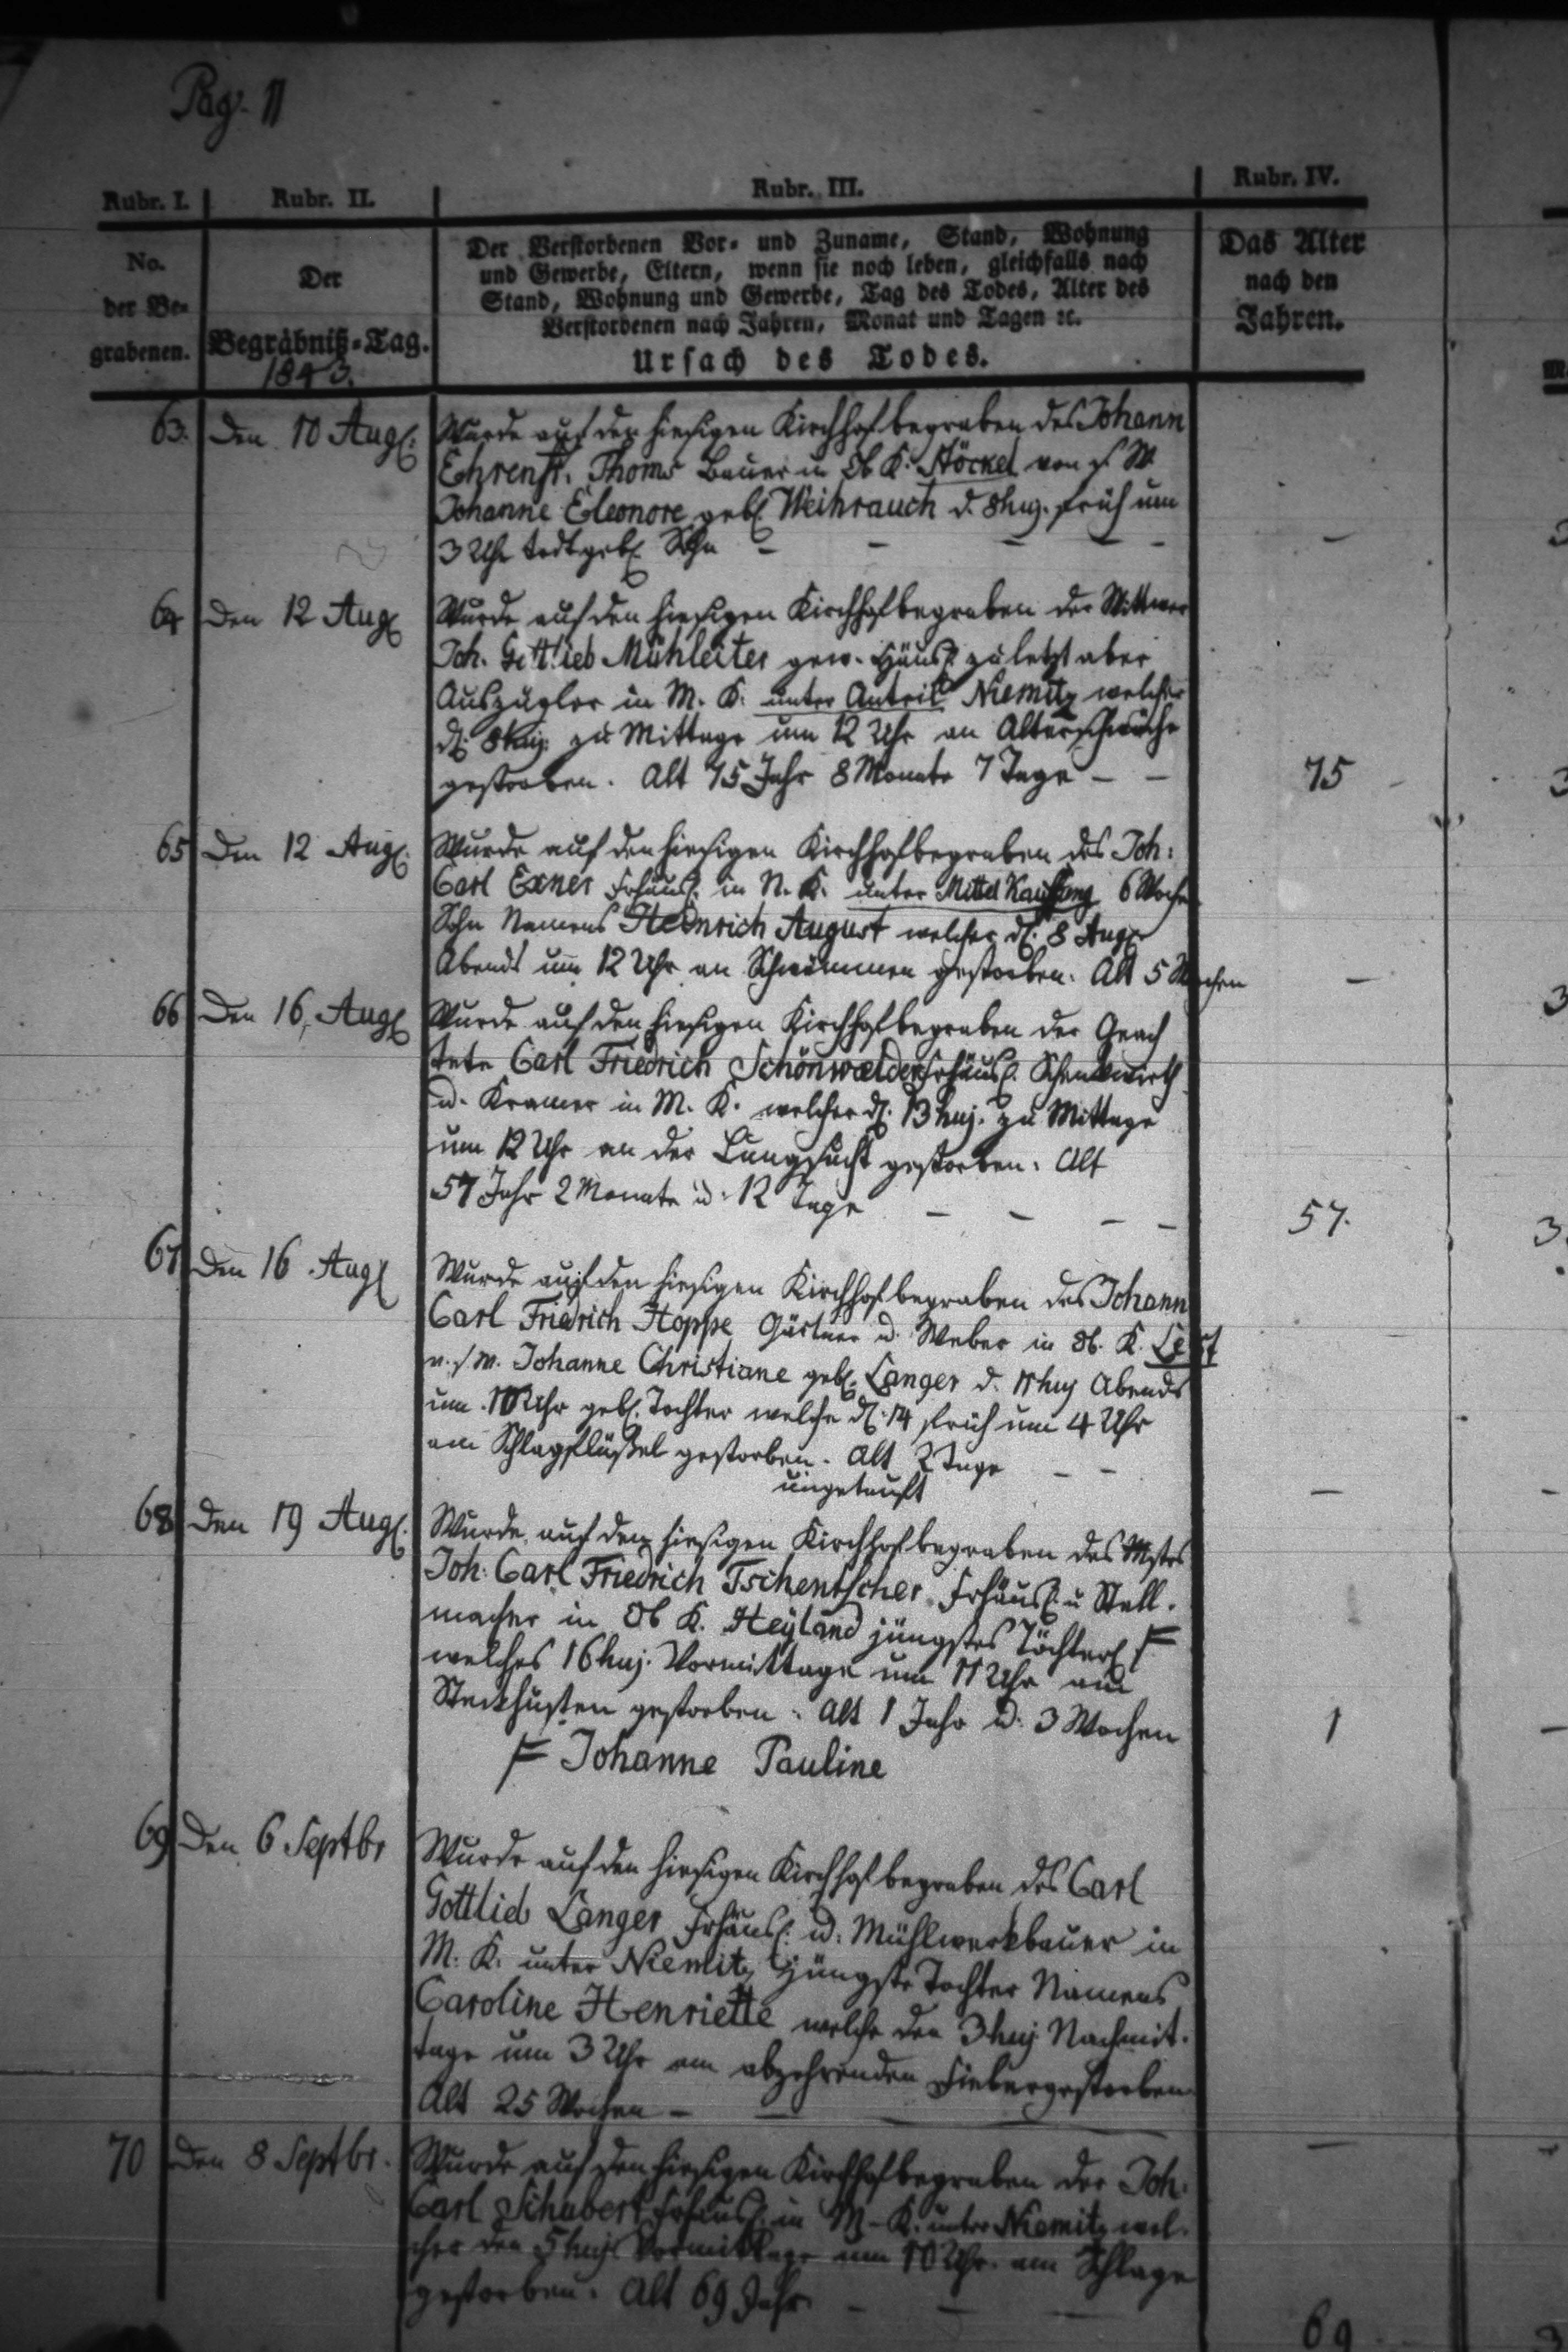 Pag. 11
Rubr. I.
Rubr. II.
Rubr. III.
Rubr. IV.
No.
der Be-
grabenen.
Der
Begräbniß-Tag.
1843.
Der Verstorbenen Vor- und Zuname, Stand, Wohnung
und Gewerbe, Eltern, wenn sie noch leben, gleichfalls nach
Stand, Wohnung und Gewerbe, Tag des Todes, Alter des
Verstorbenen nach Jahren, Monat und Tagen ꝛc.
Ursach des Todes.
Das Alter
nach den
Jahren.
63. Den 10 Aug.
Wurde auf den hiesigen Kirchhof begraben des Johann
Ehrenfr. Thoms Bauer in Ob K. Stöckel von s. W.
Johanne Eleonore geb. Weihrauch d. 8 huj. früh um
3 Uhr todtgeb. Sohn – – – – –
–
64 Den 12 Aug.
Wurde auf den hiesigen Kirchhof begraben der Wittwer
Joh. Gottlieb Mühleiter gew. Häusl. zuletzt aber
Auszügler in M. K. unter Anteil Niemitz welcher
d. 8 huj. zu Mittage um 12 Uhr an Altersschwäche
gestorben. Alt 75 Jahr 8 Monate 7 Tage – –
75
65 Den 12 Aug.
Wurde auf den hiesigen Kirchhof begraben des Joh:
Carl Exner Frhäusl. in N. K. unter Mittel Kauffung 6 Woch
Sohn Namens Heinrich August welcher d. 8 Aug.
Abends um 12 Uhr an Schwämmen gestorben. Alt 5 Wochen
–
66 Den 16. Aug.
Wurde auf den hiesigen Kirchhof begraben der Geach
tete Carl Friedrich Schönwaelder Frhäusl. Schenkwirth
u. Kramer in M. K. welcher d. 13 huj. zu Mittage
um 12 Uhr an der Lungsucht gestorben. Alt
57 Jahr 2 Monate u. 12 Tage – – – –
57.
67 Den 16 Aug.
Wurde auf den hiesigen Kirchhof begraben des Johann
Carl Friedrich Hoppe Gärtner u. Weber in Ob. K. Lest
v. s. W. Johanne Christiane geb. Langer d. 11 huj Abends
um 10 Uhr geb. Tochter welche d. 14 früh um 4 Uhr
am Schlagflüßel gestorben. Alt 2 Tage – –
ungetauft
–
68 Den 19 Aug.
Wurde auf den hiesigen Kirchhof begraben des Mstrs
Joh. Carl Friedrich Tschentscher Frhäusl. u Stell-
macher in Ob K. Heyland jüngstes Töchterl. F
welches 16 huj. Vormittage um 11 Uhr am
Steckhusten gestorben. Alt 1 Jahr u. 3 Wochen
F Johanne Pauline
1
69 Den 6 Septbr
Wurde auf den hiesigen Kirchhof begraben des Carl
Gottlieb Langer Frhäusl. u. Mühlwerkbauer in
M. K. unter Niemitz jüngste Tochter Namens
Caroline Henriette welche den 3 huj Nachmit-
tage um 3 Uhr am abzehrenden Fieber gestorben
Alt 25 Wochen –
–
70 Den 8 Septbr.
Wurde auf den hiesigen Kirchhof begraben der Joh.
Carl Schubert Frhäusl. in M. K. unter Niemitz wel-
cher den 5 huj. Vormittage um 10 Uhr am Schlage
gestorben. Alt 69 Jahr. – – –
69